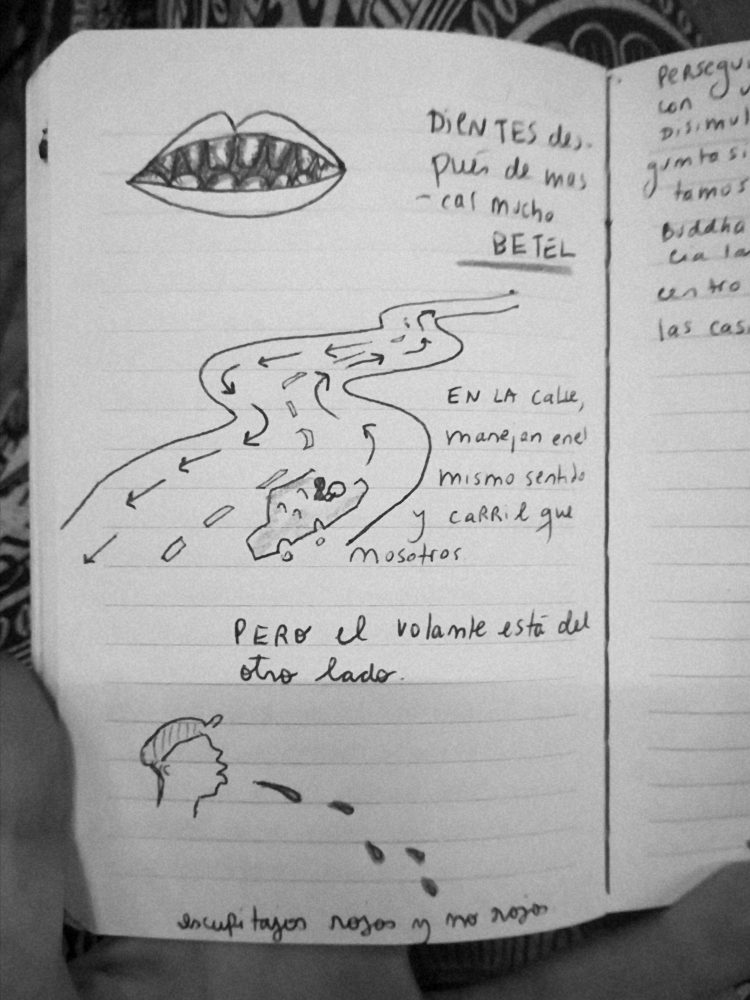 DIENTES des-
pués de mas
-car mucho
BETEL
EN LA CALLE,
manejan en el
mismo sentido
y CARRIL que
nosotros
PERO el volante está del
otro lado.
escupitajos rojos y no rojos
PERSEGUI
con
DISIMUL
tamos
Buddha
cia la
centro
las cas